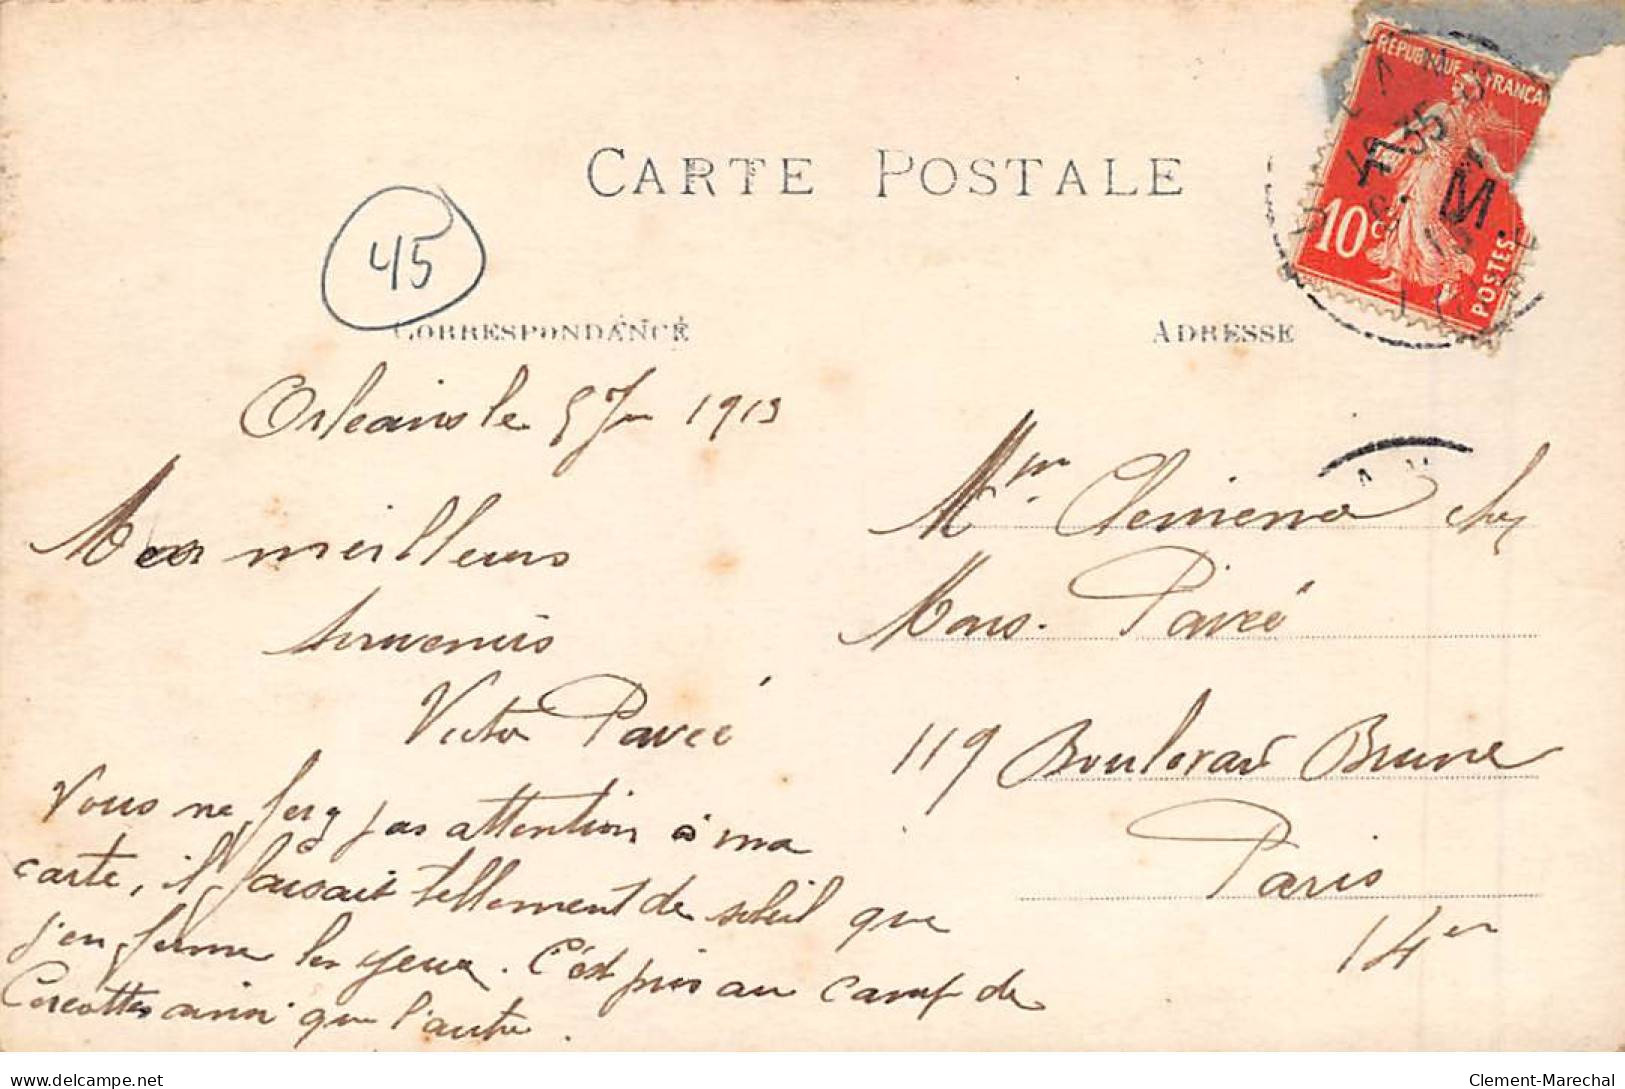 CARTE POSTALE
RÉPUBLIQUE FRANÇA
10c
POSTES
45
CORRESPONDANCE
ADRESSE
Orleans le 5 1913
Mes meilleurs
souvenirs
Victor Pavée
Vous ne ferez pas attention à ma
carte, il faisait tellement de soleil que
j'en ferme les yeux. C'est pris au camp de
Cercottes ainsi que l'autre.
Mme chez
Mons. Pavée
119 Boulevard Brune
Paris
14er
delcampe.net
Clement-Marechal